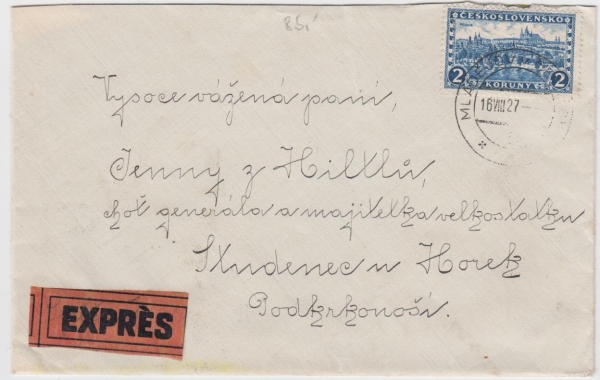 85,-
ČESKOSLOVENSKO
2 KORUNY 2
MLA
16 VIII 27
Vysoce vážená paní,
Jenny z Hiltlů,
choť generála a majitelka velkostatku
Studenec u Horek
Podkrkonoší.
EXPRÈS